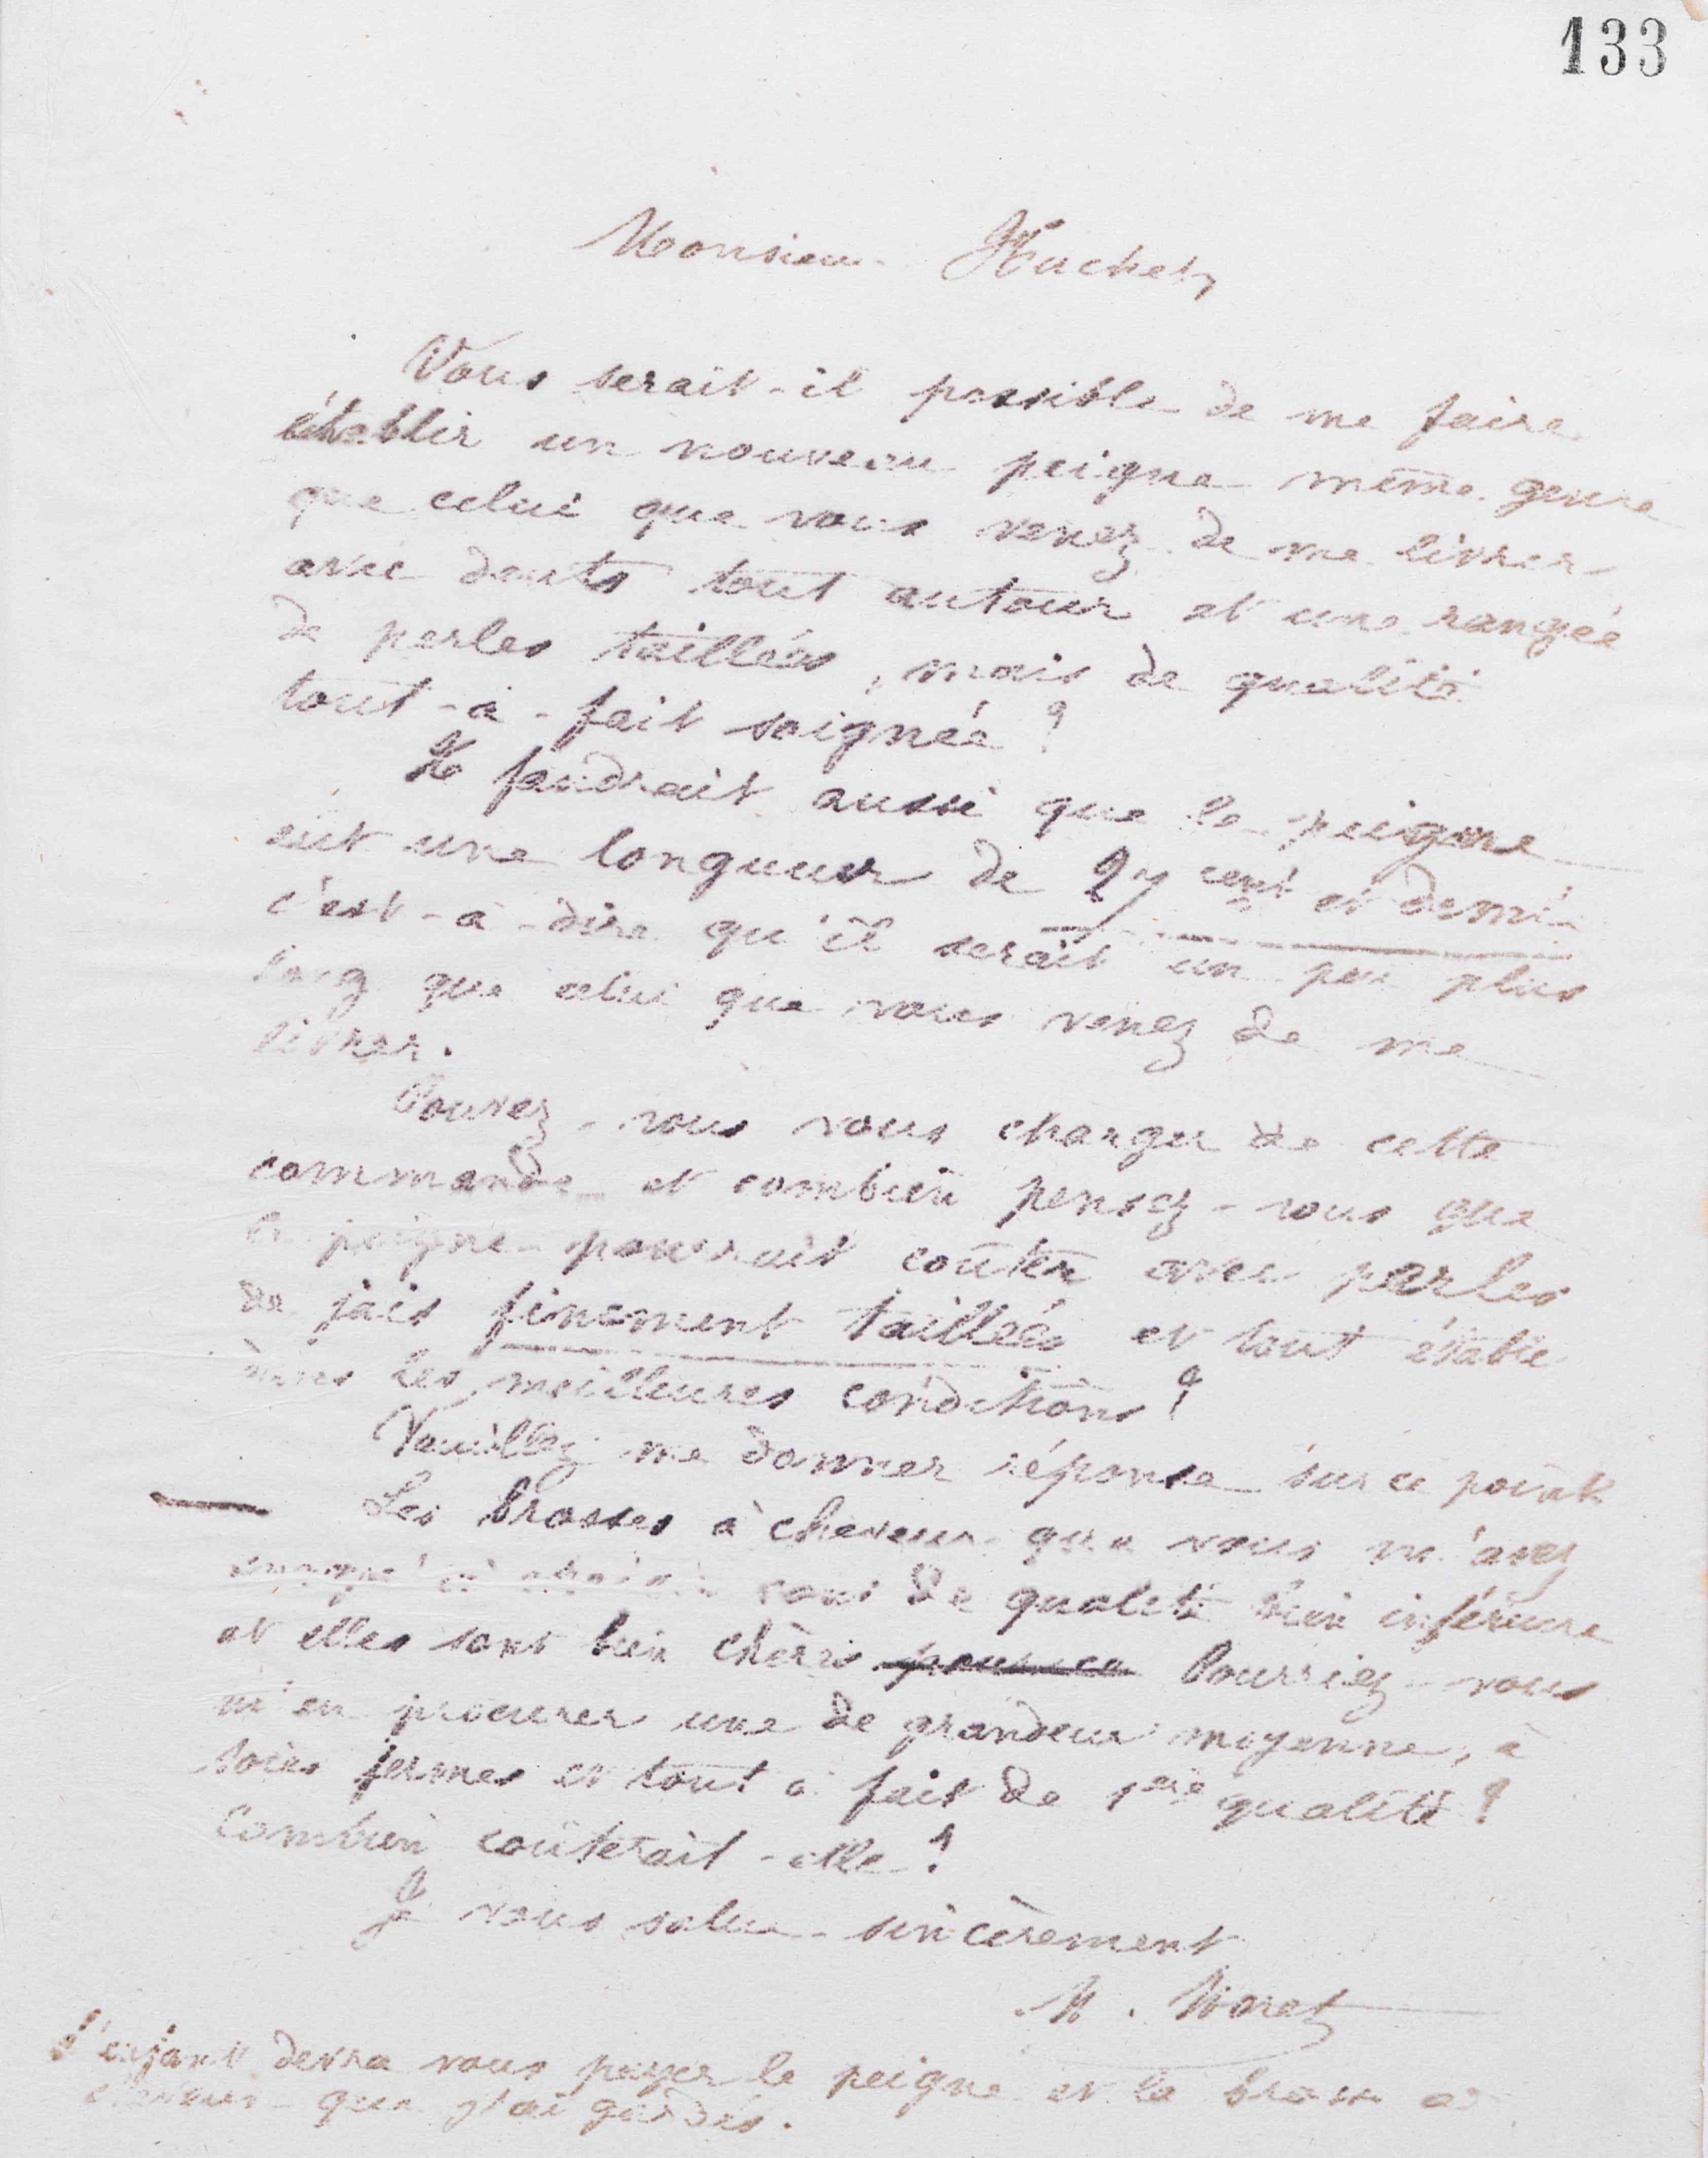 133
Monsieur Huchet,
Vous serait-il possible de me faire
établir un nouveau peigne même genre
que celui que vous venez de me livrer
avec dents tout autour et une rangée
de perles taillées, mais de qualité
tout-à-fait soignée ?
Il faudrait aussi que le peigne
eût une longueur de 27 cent et demi
c'est-à-dire qu'il serait un peu plus
long que celui que vous venez de me
livrer.
Pouvez-vous vous charger de cette
commande et combien pensez-vous que
le peigne pourrait coûter avec perles
de jais finement taillées et tout établi
dans les meilleures conditions ?
Veuillez me donner réponse sur ce point
Les brosses à cheveux que vous m'avez
envoyé à choisir sont de qualité bien inférieure
et elles sont bien chères Pourriez-vous
m'en procurer une de grandeur moyenne, à
soies fermes et tout à fait de 1ère qualité ?
Combien coûterait-elle ?
Je vous salue sincèrement
M. Moret
L'enfant devra vous payer le peigne et la brosse à
cheveux que j'ai gardés.